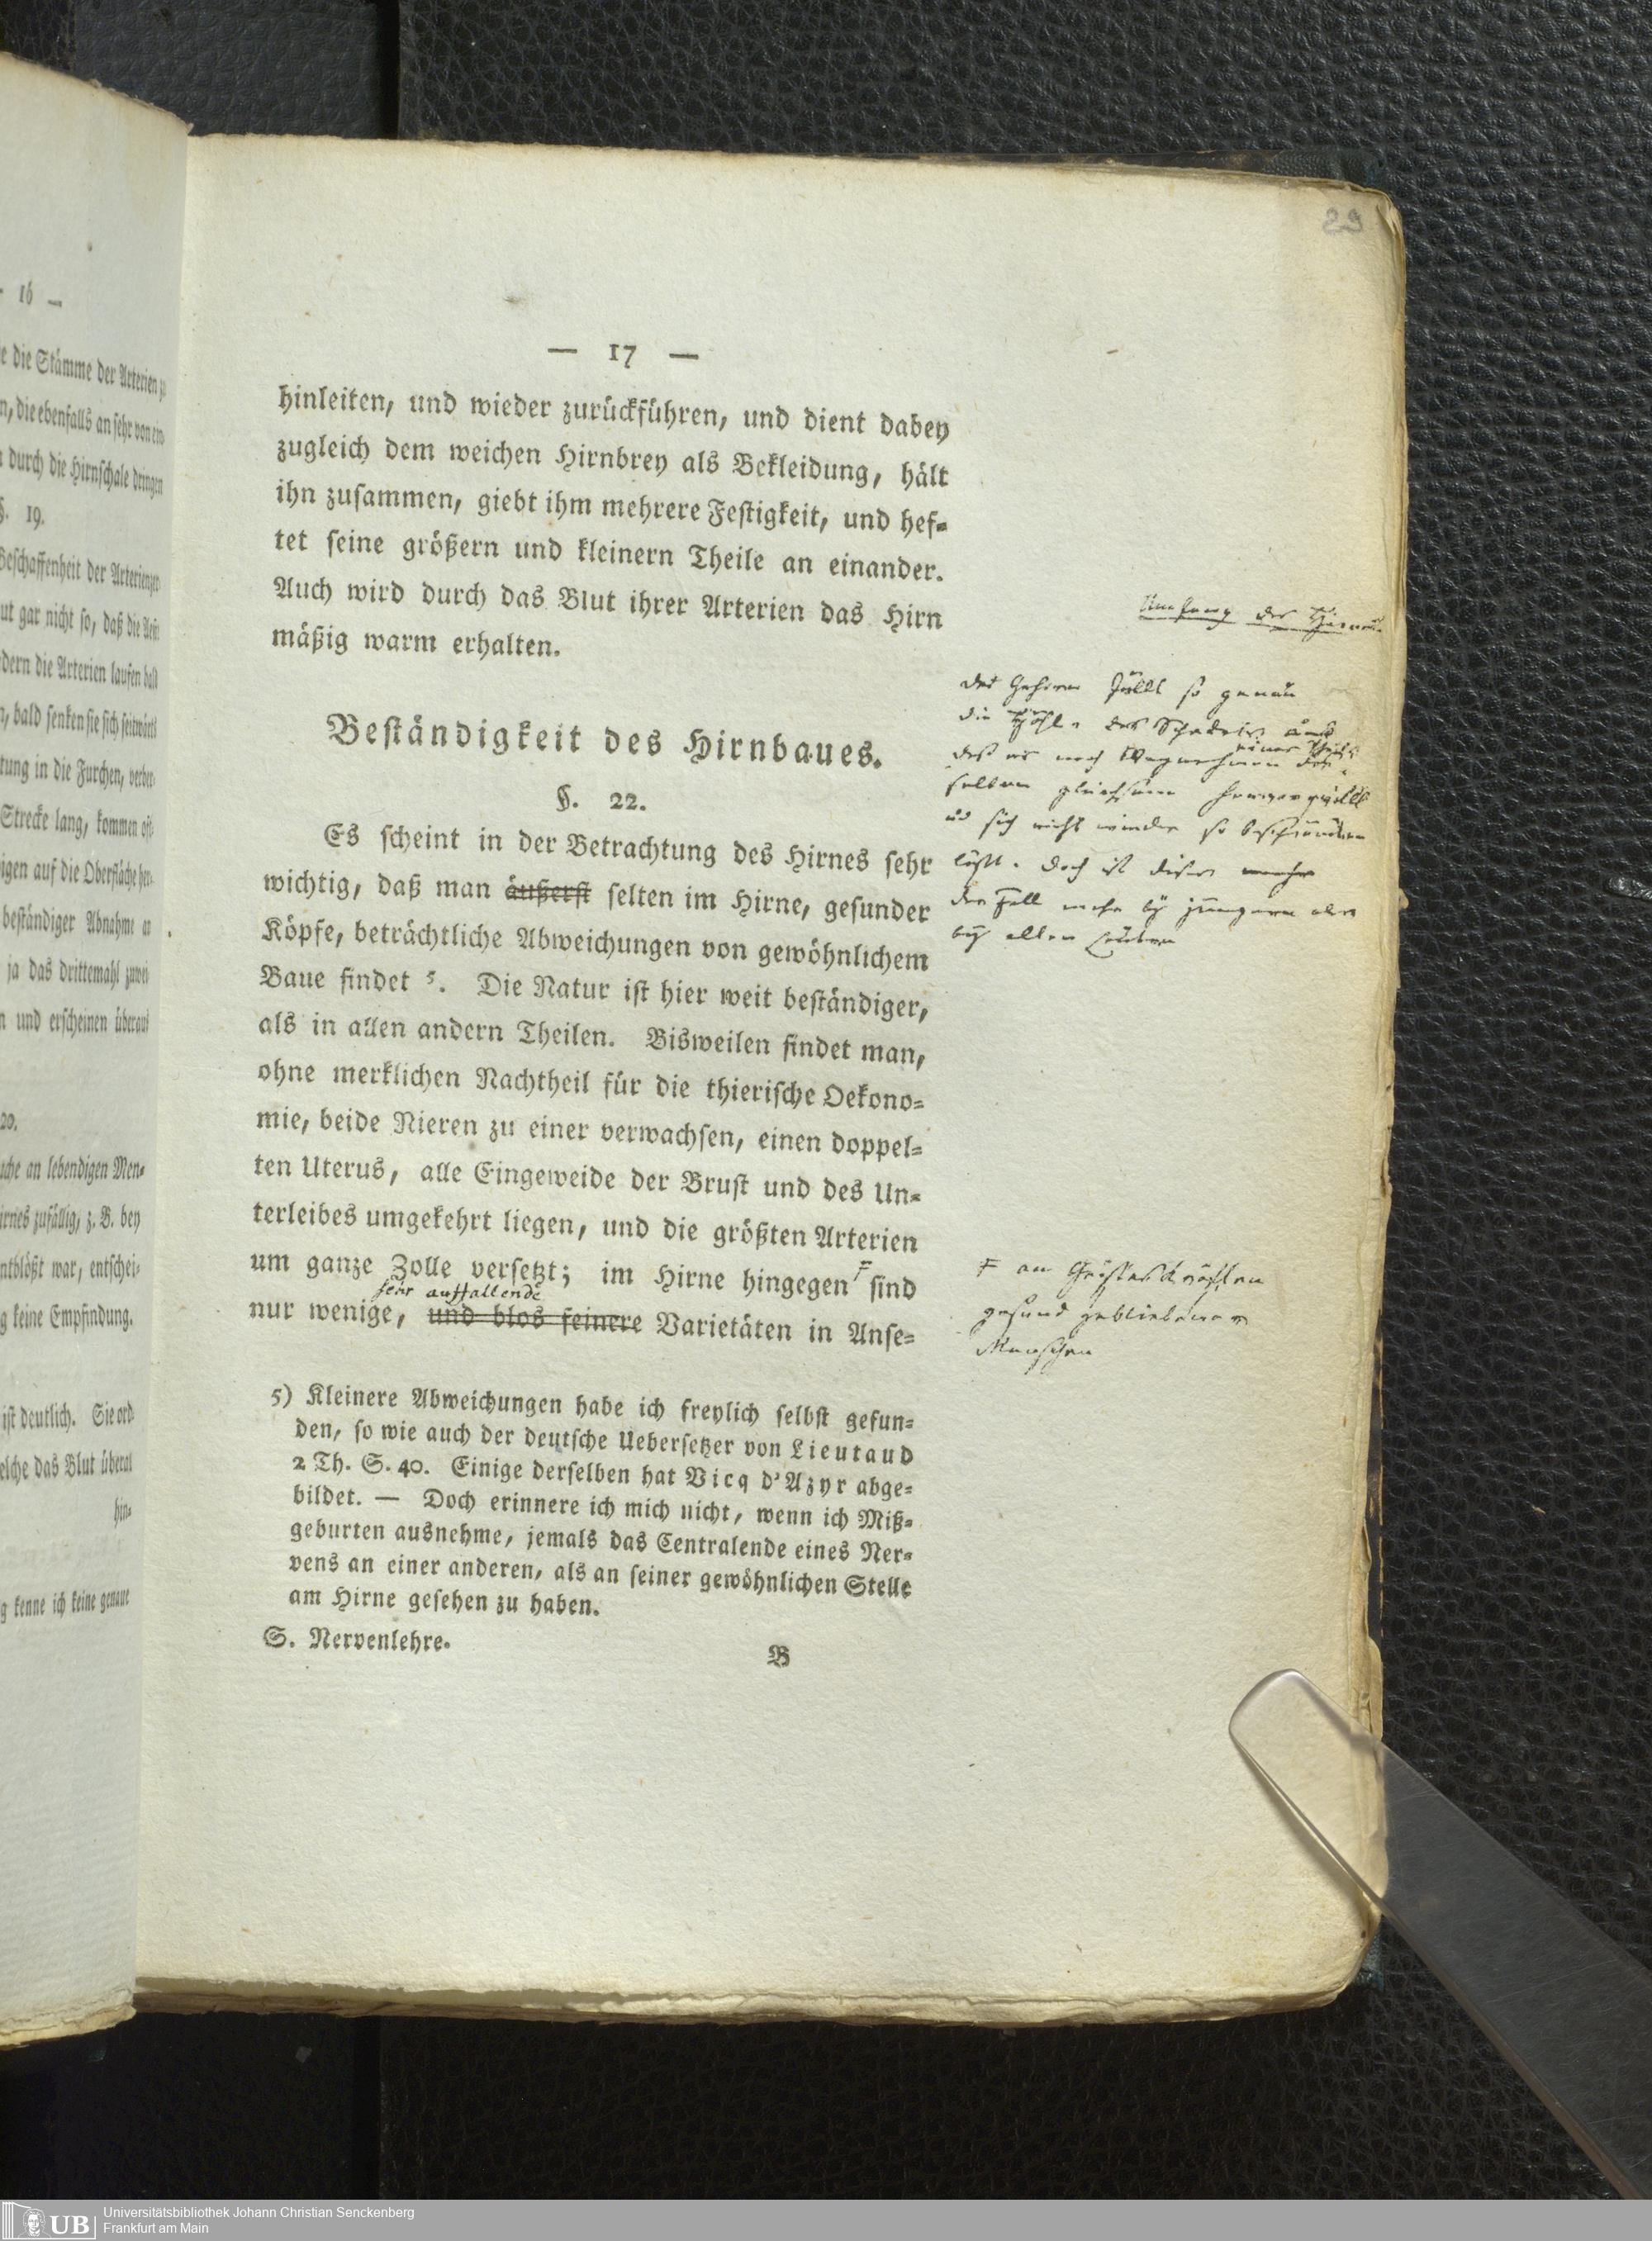 - 16 -
e die Stämme der Arterien
n, die ebenfalls an sehr von ein-
durch die Hirnschale dringen
§. 19.
Beschaffenheit der Arterien
ut gar nicht so, daß die
dern die Arterien laufen bald
n, bald senken sie sich seitwärts
tung in die Furchen,
Strecke lang, kommen
igen auf die Oberfläche
beständiger Abnahme an
ja das drittemahl zwei
n und erscheinen überaus
20.
uche an lebendigen Men-
irnes zufällig, z. B. bey
ntblößt war, entschei-
g keine Empfindung.
ist deutlich. Sie
elche das Blut überal
hin-
g kenne ich keine genaue
29
— 17 —
hinleiten, und wieder zurückführen, und dient dabey
zugleich dem weichen Hirnbrey als Bekleidung, hält
ihn zusammen, giebt ihm mehrere Festigkeit, und hef-
tet seine größern und kleinern Theile an einander.
Auch wird durch das Blut ihrer Arterien das Hirn
mäßig warm erhalten.
Beständigkeit des Hirnbaues.
§. 22.
Es scheint in der Betrachtung des Hirnes sehr
wichtig, daß man äußerst selten im Hirne, gesunder
Köpfe, beträchtliche Abweichungen von gewöhnlichem
Baue findet 5. Die Natur ist hier weit beständiger,
als in allen andern Theilen. Bisweilen findet man,
ohne merklichen Nachtheil für die thierische Oekono-
mie, beide Nieren zu einer verwachsen, einen doppel-
ten Uterus, alle Eingeweide der Brust und des Un-
terleibes umgekehrt liegen, und die größten Arterien
um ganze Zolle versetzt; im Hirne hingegen F sind
sehr auffallende
nur wenige, und blos feinere Varietäten in Anse-
5) Kleinere Abweichungen habe ich freylich selbst gefun-
den, so wie auch der deutsche Uebersetzer von Lieutaud
2 Th. S. 40. Einige derselben hat Vicq d'Azyr abge-
bildet. — Doch erinnere ich mich nicht, wenn ich Miß-
geburten ausnehme, jemals das Centralende eines Ner-
vens an einer anderen, als an seiner gewöhnlichen Stelle
am Hirne gesehen zu haben.
S. Nervenlehre.
B
des
das Gehirn füllt so genau
die Höhle des Schedels
daß es nach Wegnehmen
eines Theils
selben gleichsam hervorquillt
und sich nicht wieder so
läßt. doch ist dieses mehr
der Fall mehr bey jüngern als
bey alten Leuten
F an Geisteskräften
gesund gebliebener
Menschen
UB
Universitätsbibliothek Johann Christian Senckenberg
Frankfurt am Main